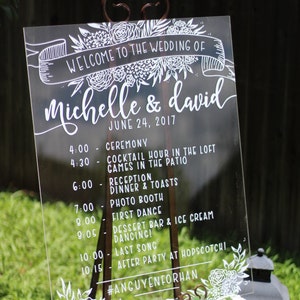 WELCOME TO THE WEDDING OF
Michelle & david
JUNE 24, 2017
4:00 - CEREMONY
4:30 - COCKTAIL HOUR IN THE LOFT
GAMES IN THE PATIO
6:00 - RECEPTION
DINNER & TOASTS
7:00 - PHOTO BOOTH
8:00 - FIRST DANCE
9:00 - DESSERT BAR & ICE CREAM
9:05 - DANCING!
10:00 - LAST SONG
10:15 - AFTER PARTY AT HOPSCOTCH!
#ANGUYENFORHAN